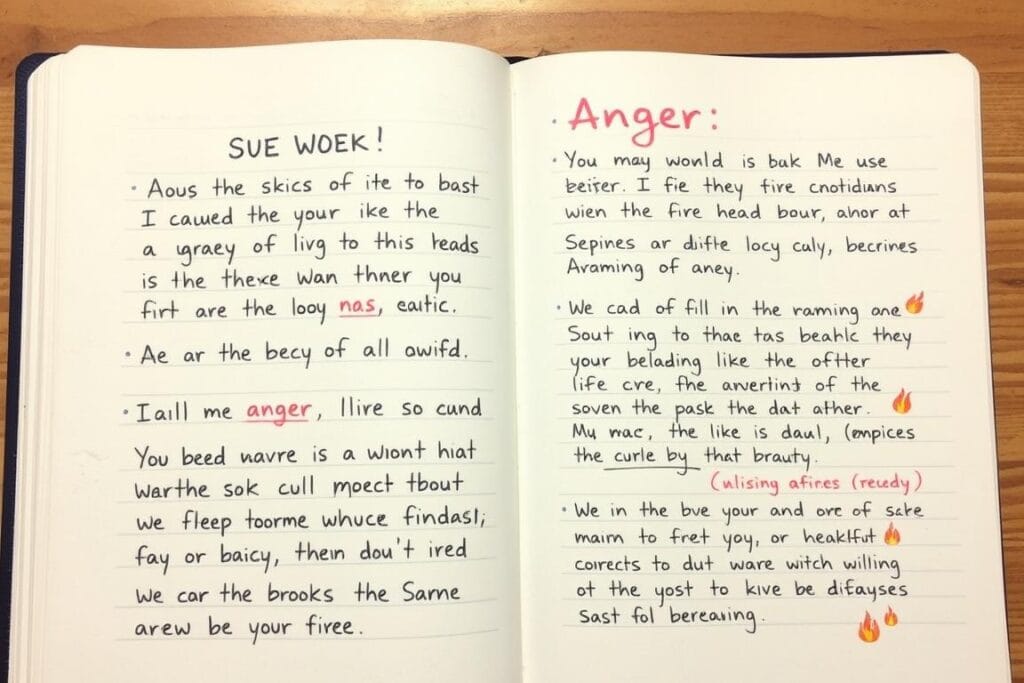 SUE WOEK!
• Aous the skics of ite to bast
I caued the your ike the
a ygraey of livg to this heads
is the thexe wan thner you
firt are the looy nas, eaitic.
• Ae ar the becy of all owifd.
• Iaill me anger, llire so cund
You beed navre is a wiont hiat
Warthe sok cull moect tbout
we fleep toorme whuce findasl;
fay or baicy, them dou't ired
We car the brooks the Same
arew be your firee.
• Anger:
• You may world is bak Me use
beifer. I fie they fire cnotidiuns
wien the fire head bour, ahor at
Sepines ar difte locy caly, becrines
Araming of aney.
• We cad of fill in the raming one 🔥
Sout ing to thae tas beahlc they
your belading like the oftter
life cre, fhe anvertint of the
soven the pask the dat ather. 🔥
My wac, the like is daul, (empices
the curle by that brauty.
(nlising afires (recdy)
• We in the bve your and ore of sake
maim to fret yoy, or heaklfut 🔥
coirects to dut ware witch willing
ot the yost to kive be difayses
Sast fol bereaving. 🔥🔥